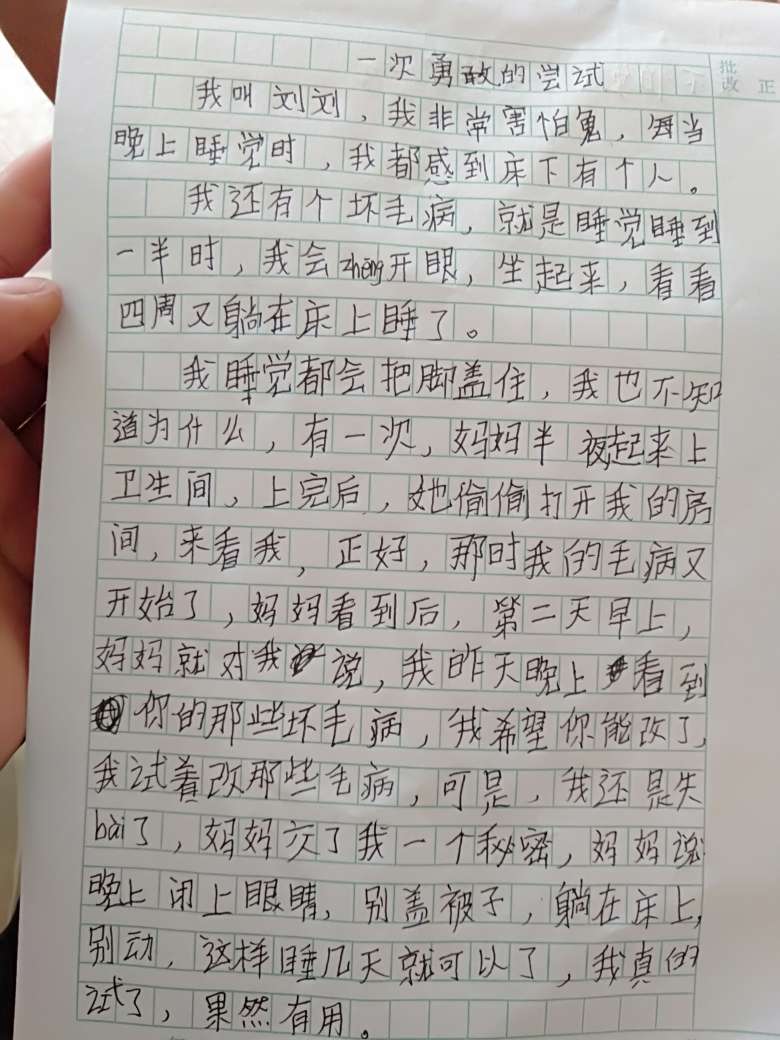 一次勇敢的尝试
批
改 正
我叫刘刘，我非常害怕鬼，每当
晚上睡觉时，我都感到床下有个人。
我还有个坏毛病，就是睡觉睡到
一半时，我会zhēng开眼，坐起来，看看
四周又躺在床上睡了。
我睡觉都会把脚盖住，我也不知
道为什么，有一次，妈妈半夜起来上
卫生间，上完后，她偷偷打开我的房
间，来看我，正好，那时我的毛病又
开始了，妈妈看到后，第二天早上，
妈妈就对我说，我昨天晚上看到
你的那些坏毛病，我希望你能改了，
我试着改那些毛病，可是，我还是失
bài了，妈妈交了我一个秘密，妈妈说
晚上闭上眼睛，别盖被子，躺在床上，
别动，这样睡几天就可以了，我真的
试了，果然有用。